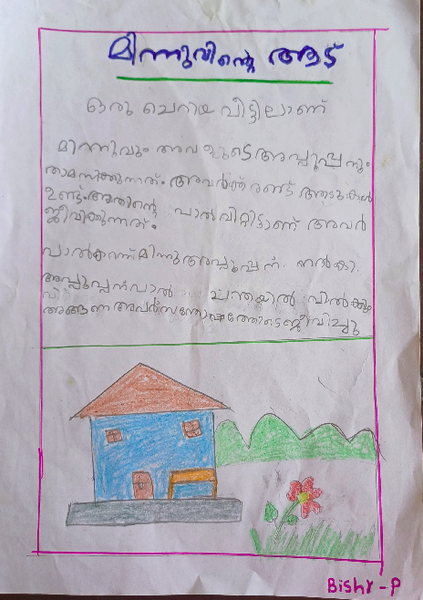 മിന്നുവിന്റെ ആട്
ഒരു ചെറിയ വീട്ടിലാണ്
മിന്നിവും അവളുടെ അപ്പൂപ്പനും
താമസിക്കുന്നത്. അവർക്ക് രണ്ട് ആടുകൾ
ഉണ്ട്. അതിന്റെ പാൽ വിറ്റിട്ടാണ് അവർ
ജീവിക്കുന്നത്.
പാൽ കറന്ന് മിന്നു അപ്പൂപ്പന് നൽകി.
അപ്പൂപ്പൻ പാൽ ചന്തയിൽ വിൽക്കും
അങ്ങനെ അവർ സന്തോഷത്തോടെ ജീവിച്ചു
Bishr - P